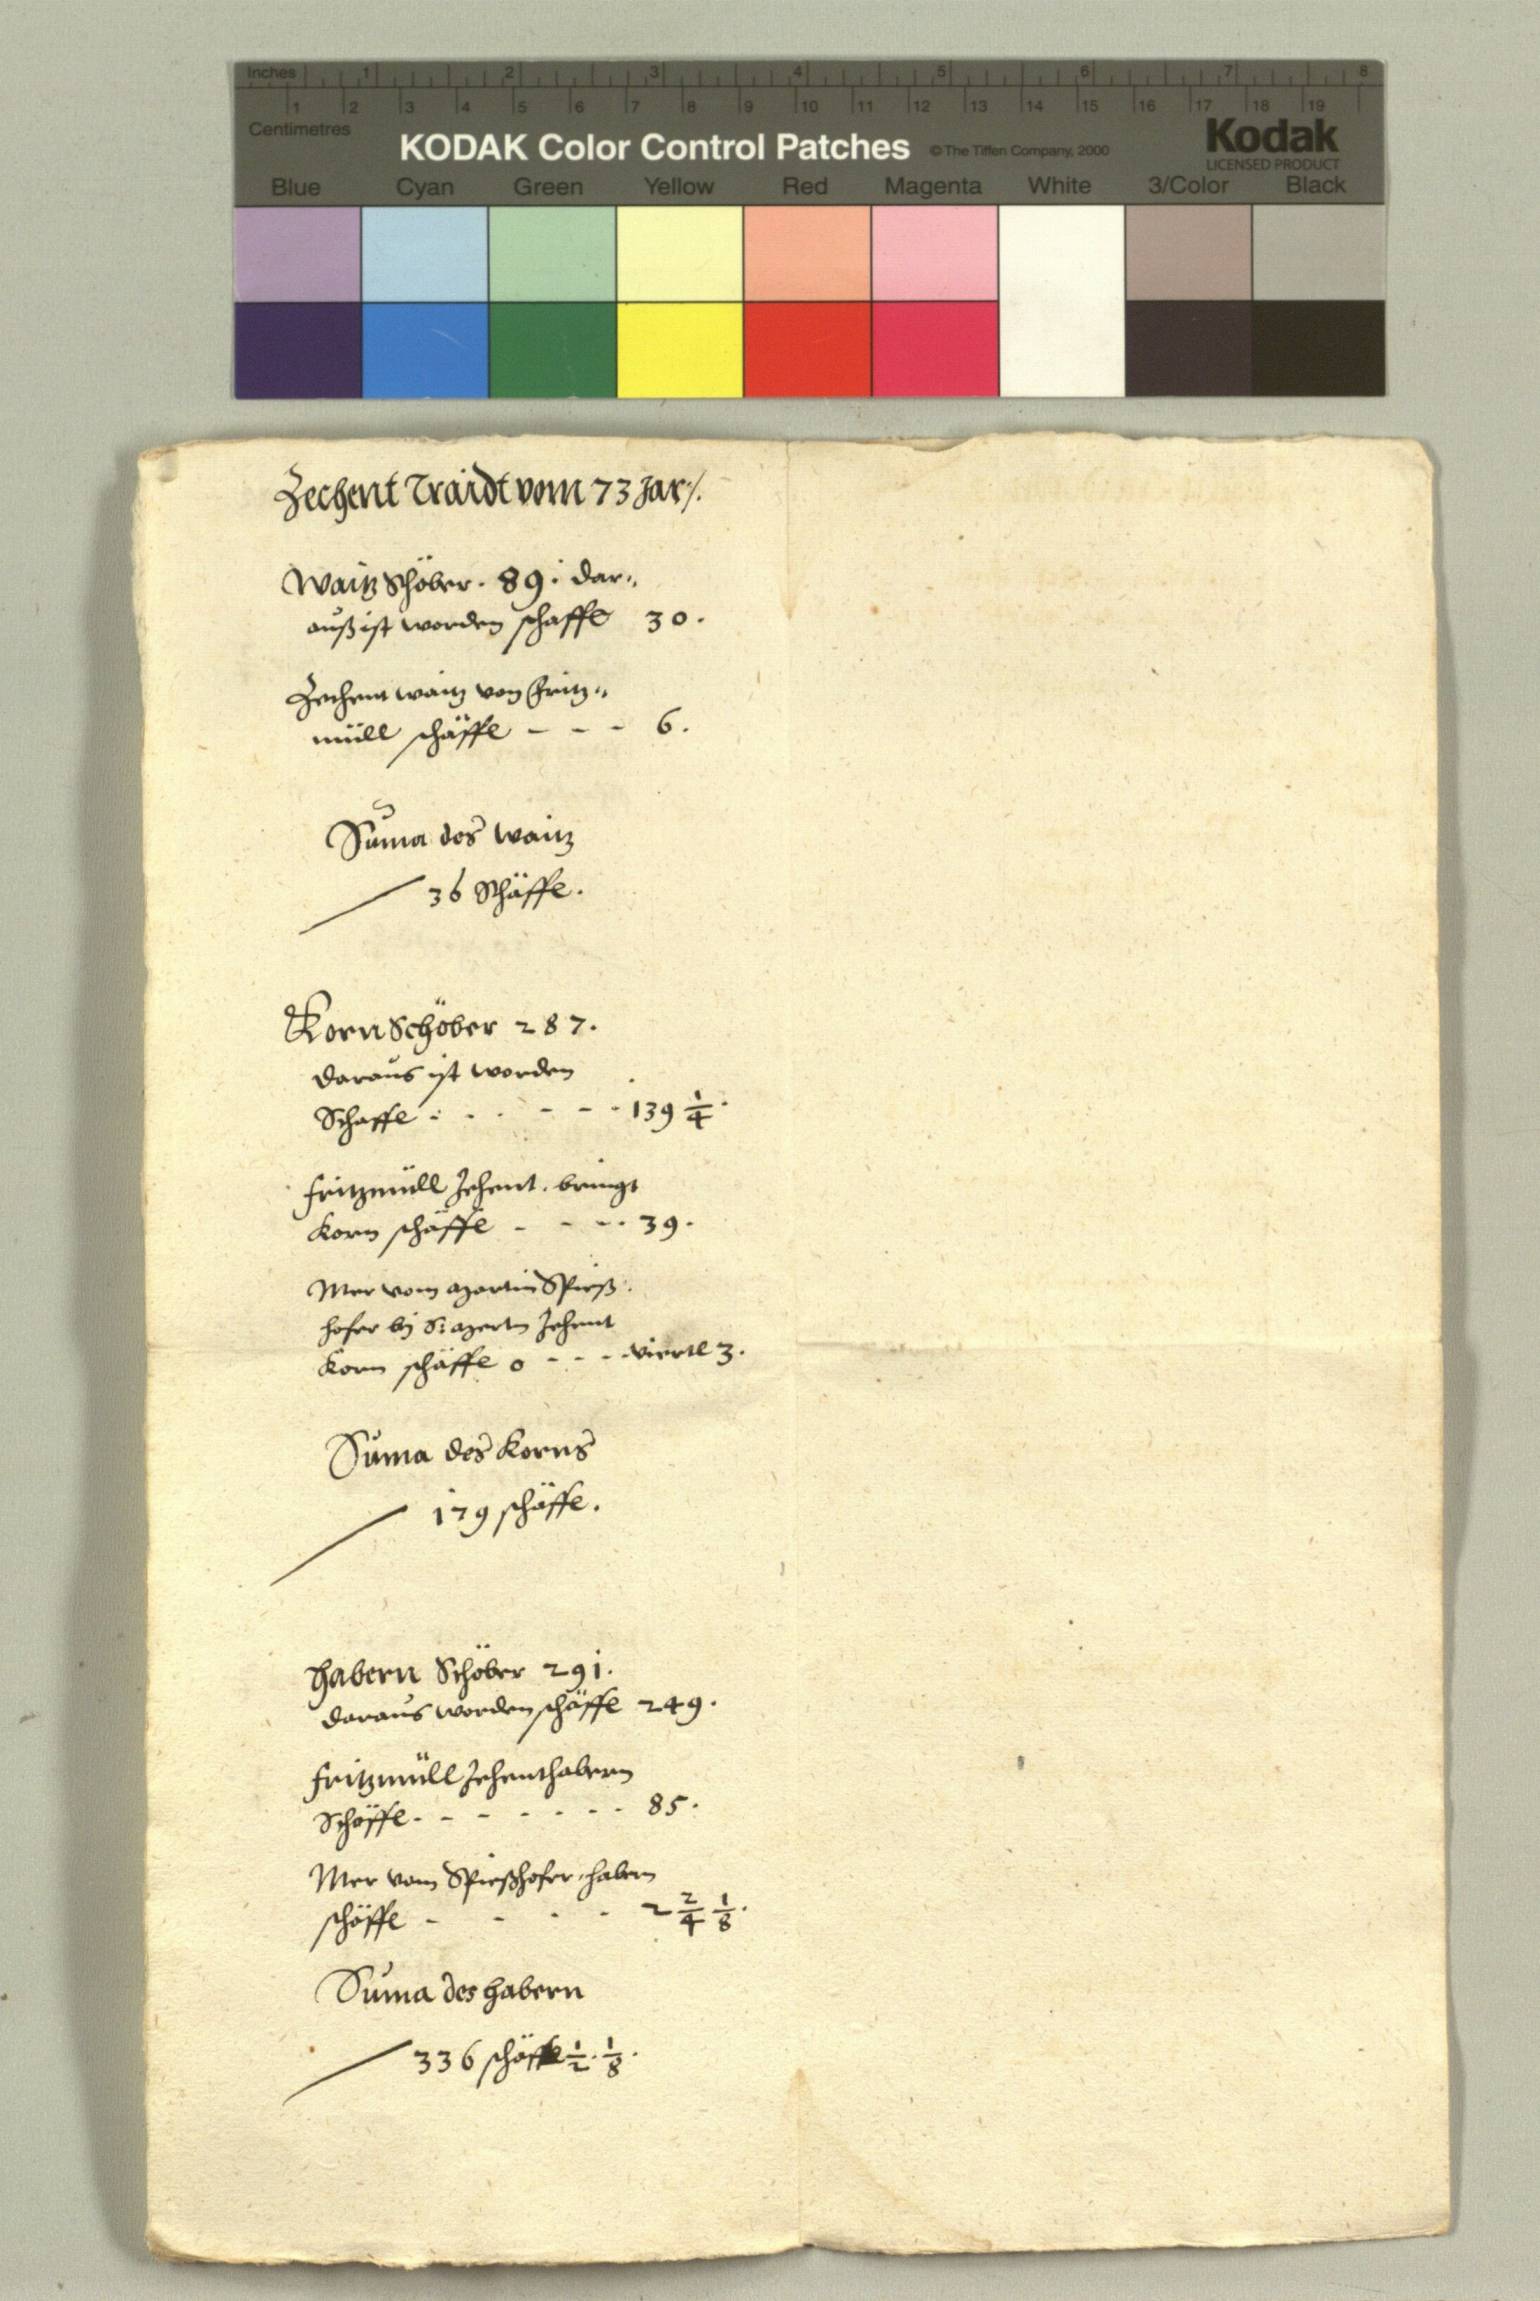 Inches 1 2 3 4 5 6 7 8
1 2 3 4 5 6 7 8 9 10 11 12 13 14 15 16 17 18 19
Centimetres
KODAK Color Control Patches © The Tiffen Company, 2000 Kodak
LICENSED PRODUCT
Blue Cyan Green Yellow Red Magenta White 3/Color Black
Zechent Traidt vom 73 Jar ./.
Waitz Schöber. 89. dar„
auß ist worden schaffe 30.
Zechent waitz von Fritz„
müll schäffe - - - 6.
Suma des waitz
36 Schäffe.
Korn Schöber 287.
daraus ist worden
Schaffe - - - - - 139 1/4.
fritzmüll Zehent. bringt
Korn schäffe - - - - 39.
Mer vom Martin Spieß.
hofer bej S: Mertn Zehent
Korn schäffe 0 - - - viertl 3.
Suma des Korns
179 schäffe.
habern Schöber 291.
daraus worden schäffe 249.
fritzmüll Zehenthabern
Schäffe - - - - - - 85.
Mer vom Spießhofer habern
schäffe - - - - 2 2/4 1/8.
Suma des habern
336 schäffe 1/2. 1/8.